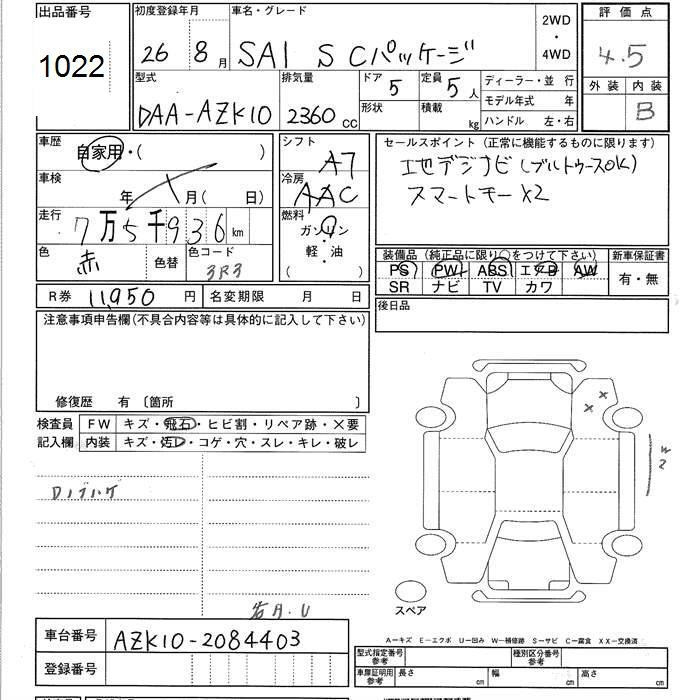 出品番号 初度登録年月 車名・グレード 2WD・4WD 評価点
1022 26 8月 SAI S Cパッケージ 4.5
型式 排気量 ドア 5 定員 5人 ディーラー・並行 外装 内装
DAA-AZK10 2360 CC 形状 積載 kg モデル年式 年 B
ハンドル 左・右
車歴 自家用・( ) シフト A7 セールスポイント (正常に機能するものに限ります)
車検 年 月( 日) 冷房 AAC 地デジナビ(ブルトゥースOK)
スマートキーX2
走行 7万5千936km 燃料 ガソリン・軽・油 ( )
色 赤 色替 色コード 3R3
装備品 (純正品に限り○をつけて下さい) 新車保証書
PS PW ABS エアB AW 有・無
SR ナビ TV カワ
R券 11,950円 名変期限 月 日 後日品
注意事項申告欄(不具合内容等は具体的に記入して下さい)
修復歴 有 〔箇所 〕
検査員 FW キズ・飛石・ヒビ割・リペア跡・×要
記入欄 内装 キズ・汚レ・コゲ・穴・スレ・キレ・破レ
Dノブハゲ
W2
スペア
A-キズ E-エクボ U-凹み W-補修跡 S-サビ C-腐食 XX-交換済
車台番号 AZK10-2084403
型式指定番号 参考 種別区分番号 参考
登録番号
車庫証明用 参考 長さ cm 幅 cm 高さ cm